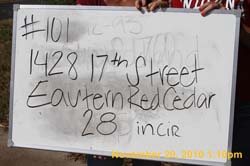 #101
1428 17th Street
Eastern Red Cedar
28 in CIR
November 20, 2010 1:16pm